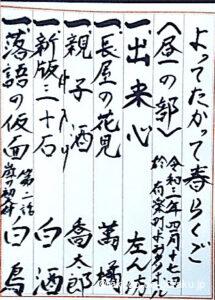 よってたかって春らくご
〈昼の部〉 令和三年四月十七日
於 有楽町よみうりホール
一、出来心 左ん坊
一、長屋の花見 萬橘
一、親子酒 喬太郎
仲入り
一、新版三十石 白酒
一、落語の仮面 第二話 白鳥